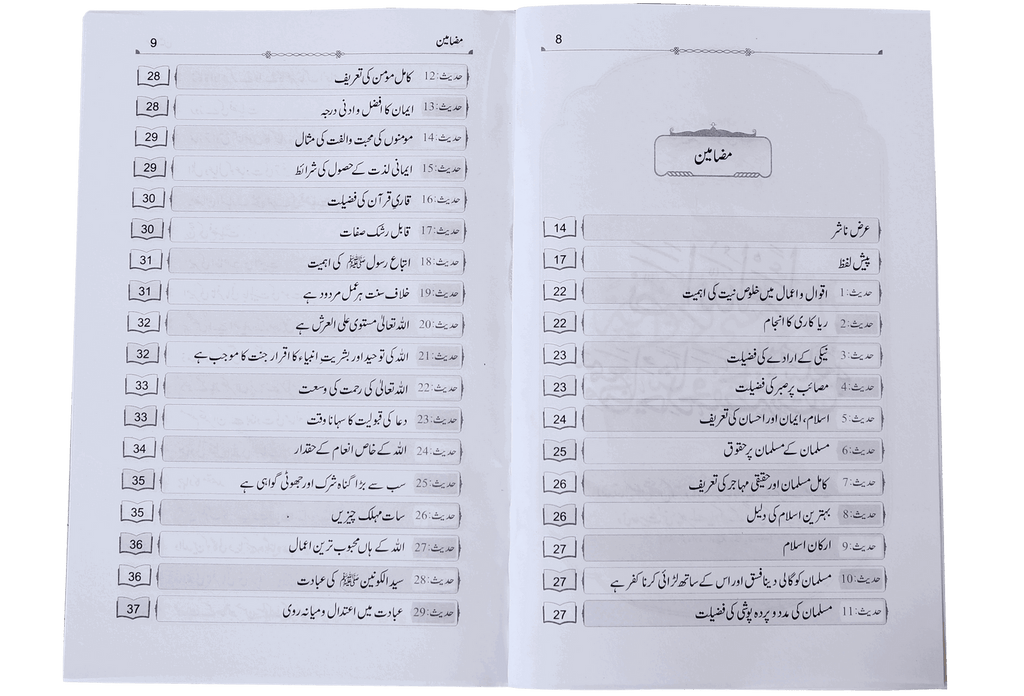 8
مضامین
عرض ناشر 14
پیش لفظ 17
حدیث:1 اقوال و اعمال میں خلوص نیت کی اہمیت 22
حدیث:2 ریا کاری کا انجام 22
حدیث:3 نیکی کے ارادے کی فضیلت 23
حدیث:4 مصائب پر صبر کی فضیلت 23
حدیث:5 اسلام، ایمان اور احسان کی تعریف 24
حدیث:6 مسلمان کے مسلمان پر حقوق 25
حدیث:7 کامل مسلمان اور حقیقی مہاجر کی تعریف 26
حدیث:8 بہترین اسلام کی دلیل 26
حدیث:9 ارکان اسلام 27
حدیث:10 مسلمان کو گالی دینا فسق اور اس کے ساتھ لڑائی کرنا کفر ہے 27
حدیث:11 مسلمان کی مدد و پردہ پوشی کی فضیلت 27
مضامین 9
حدیث:12 کامل مؤمن کی تعریف 28
حدیث:13 ایمان کا افضل و ادنی درجہ 28
حدیث:14 مومنوں کی محبت و الفت کی مثال 29
حدیث:15 ایمانی لذت کے حصول کی شرائط 29
حدیث:16 قاریِ قرآن کی فضیلت 30
حدیث:17 قابل رشک صفات 30
حدیث:18 اتباع رسول ﷺ کی اہمیت 31
حدیث:19 خلاف سنت ہر عمل مردود ہے 31
حدیث:20 اللہ تعالیٰ مستوی علی العرش ہے 32
حدیث:21 اللہ کی توحید اور بشریتِ انبیاء کا اقرار جنت کا موجب ہے 32
حدیث:22 اللہ تعالیٰ کی رحمت کی وسعت 33
حدیث:23 دعا کی قبولیت کا سہانا وقت 33
حدیث:24 اللہ کے خاص انعام کے حقدار 34
حدیث:25 سب سے بڑا گناہ شرک اور جھوٹی گواہی ہے 35
حدیث:26 سات مہلک چیزیں 35
حدیث:27 اللہ کے ہاں محبوب ترین اعمال 36
حدیث:28 سید الکونین ﷺ کی عبادت 36
حدیث:29 عبادت میں اعتدال و میانہ روی 37